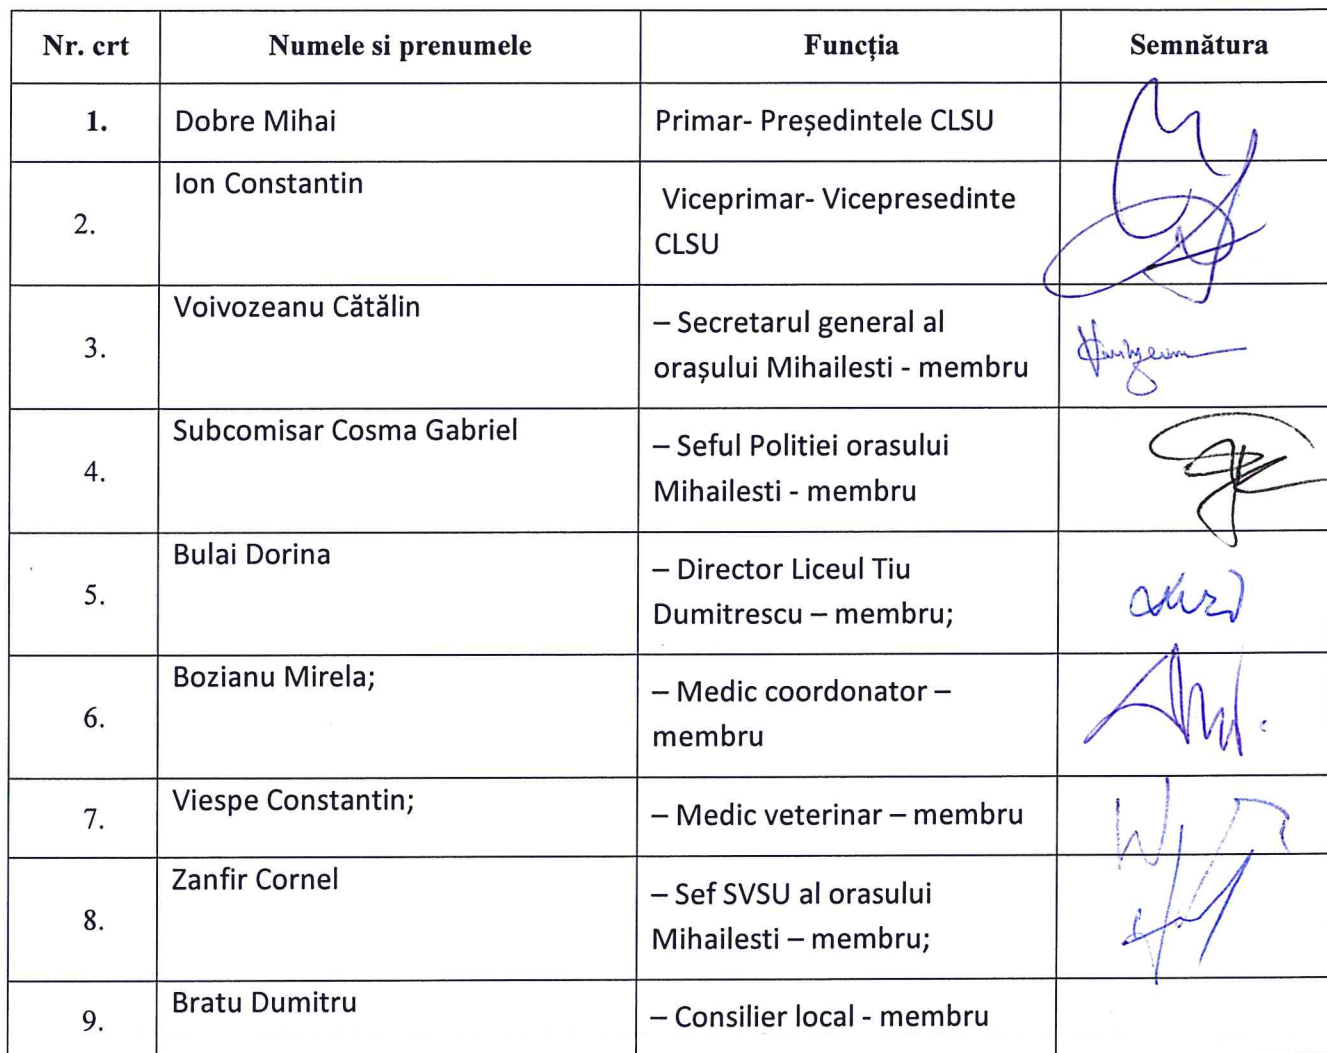 Nr. crt Numele si prenumele Funcția Semnătura
1. Dobre Mihai Primar- Președintele CLSU
2. Ion Constantin Viceprimar- Vicepresedinte
CLSU
3. Voivozeanu Cătălin – Secretarul general al
orașului Mihailesti - membru
4. Subcomisar Cosma Gabriel – Seful Politiei orasului
Mihailesti - membru
5. Bulai Dorina – Director Liceul Tiu
Dumitrescu – membru;
6. Bozianu Mirela; – Medic coordonator –
membru
7. Viespe Constantin; – Medic veterinar – membru
8. Zanfir Cornel – Sef SVSU al orasului
Mihailesti – membru;
9. Bratu Dumitru – Consilier local - membru